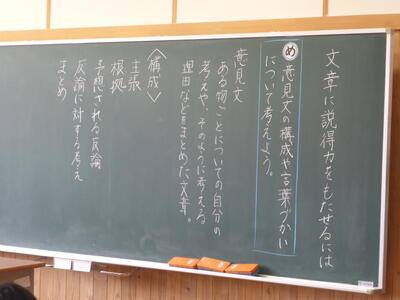 文章に説得力をもたせるには
め 意見文の構成や言葉づかい
について考えよう。
意見文
ある物ごとについての自分の
考えや、そのように考える
理由などをまとめた文章。
〈構成〉
主張
根拠
予想される反論
反論に対する考え
まとめ